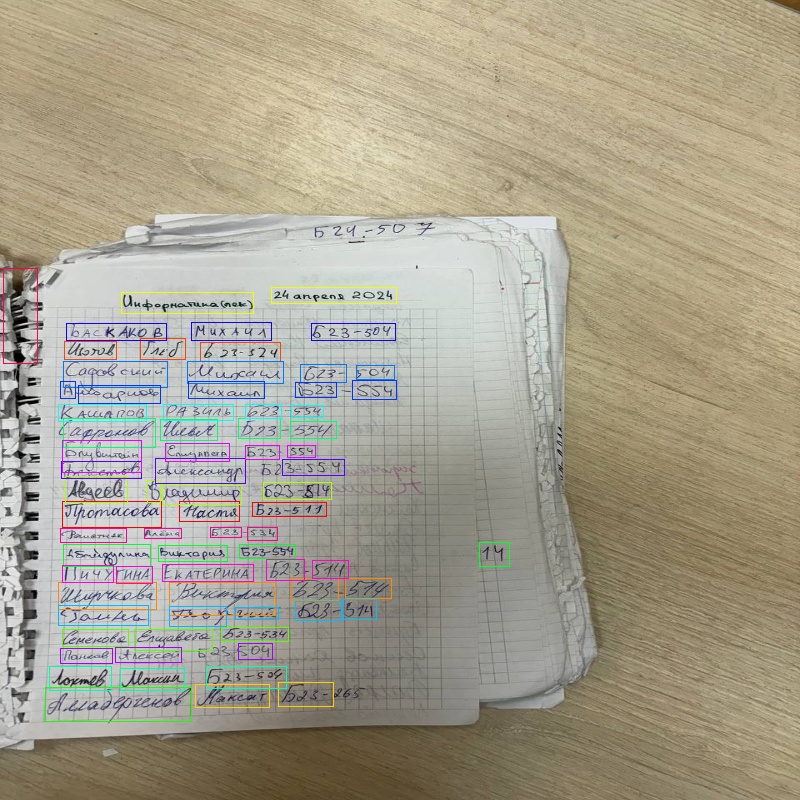 Б24-507
Информатика(лек) 24 апреля 2024
БАСКАКОВ Михаил Б23-504
Изотов Глеб Б23-524
Садовский Михаил Б23-504
Михаил Б23-554
КАШАПОВ РАЗИЛЬ Б23-554
Сафронов Илья Б23-554
Елизавета Б23 554
Александр Б23-554
Авдеев Владимир Б23-514
Протасова Настя Б23-511
Алёна Б23-534
Абайдулина Виктория Б23-554
ПИЧУГИНА ЕКАТЕРИНА Б23-514
14
Ширчкова Виктория Б23-514
Б23-514
Семенова Елизавета Б23-534
Панков Алексей Б23-504
Локтев Максим Б23-504
Алладергенов Максат Б23-265